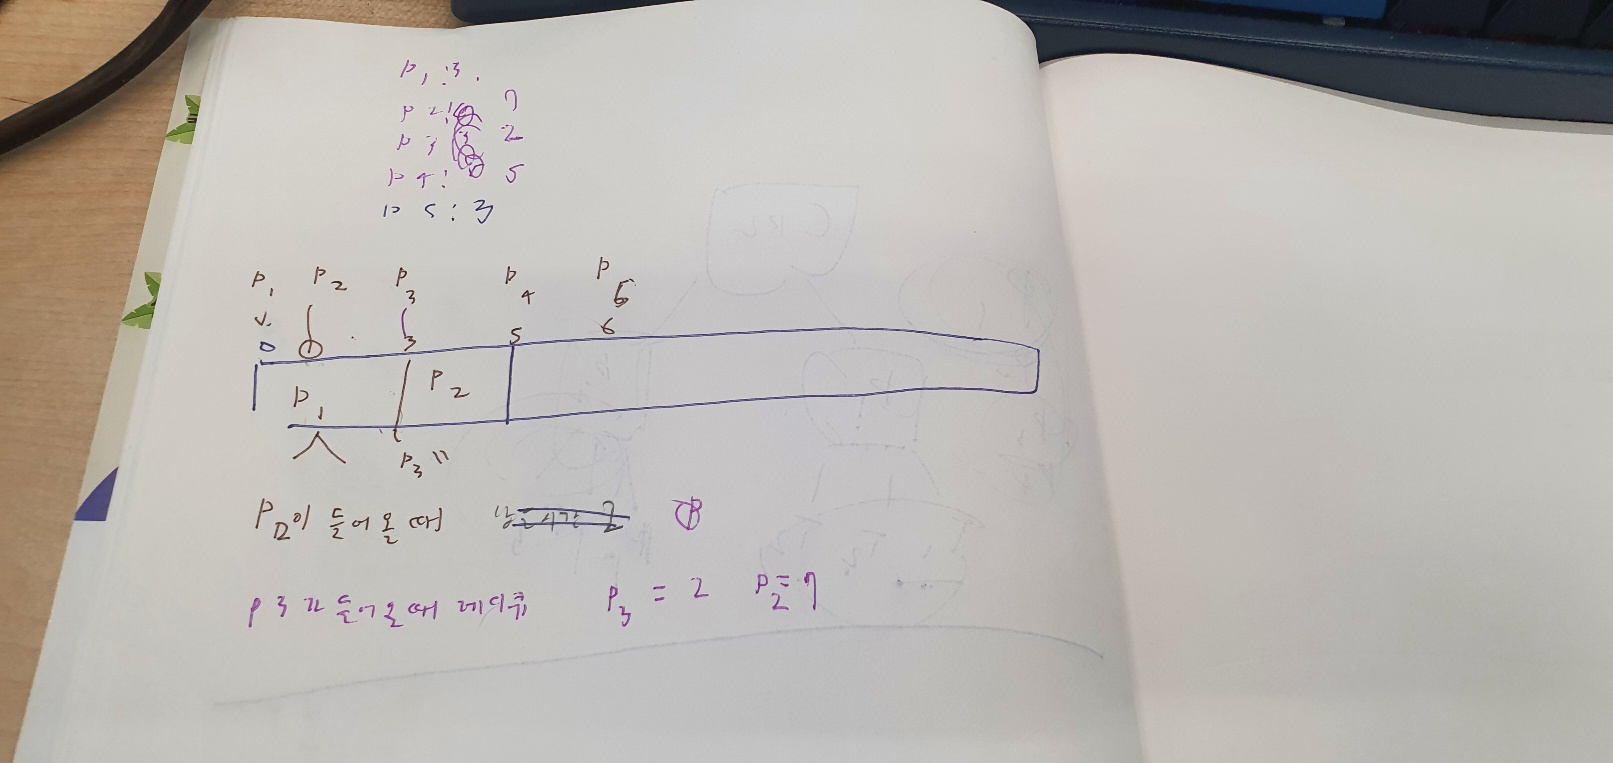 P1:3.
P2: 7
P3 2
P4: 5
P5:3
P1 P2 P3 P4 P5
0 1 3 5 6
P1 P2
P3"
P2이 들어올때
P3가 들어올때 레디큐 P3 = 2 P2=7